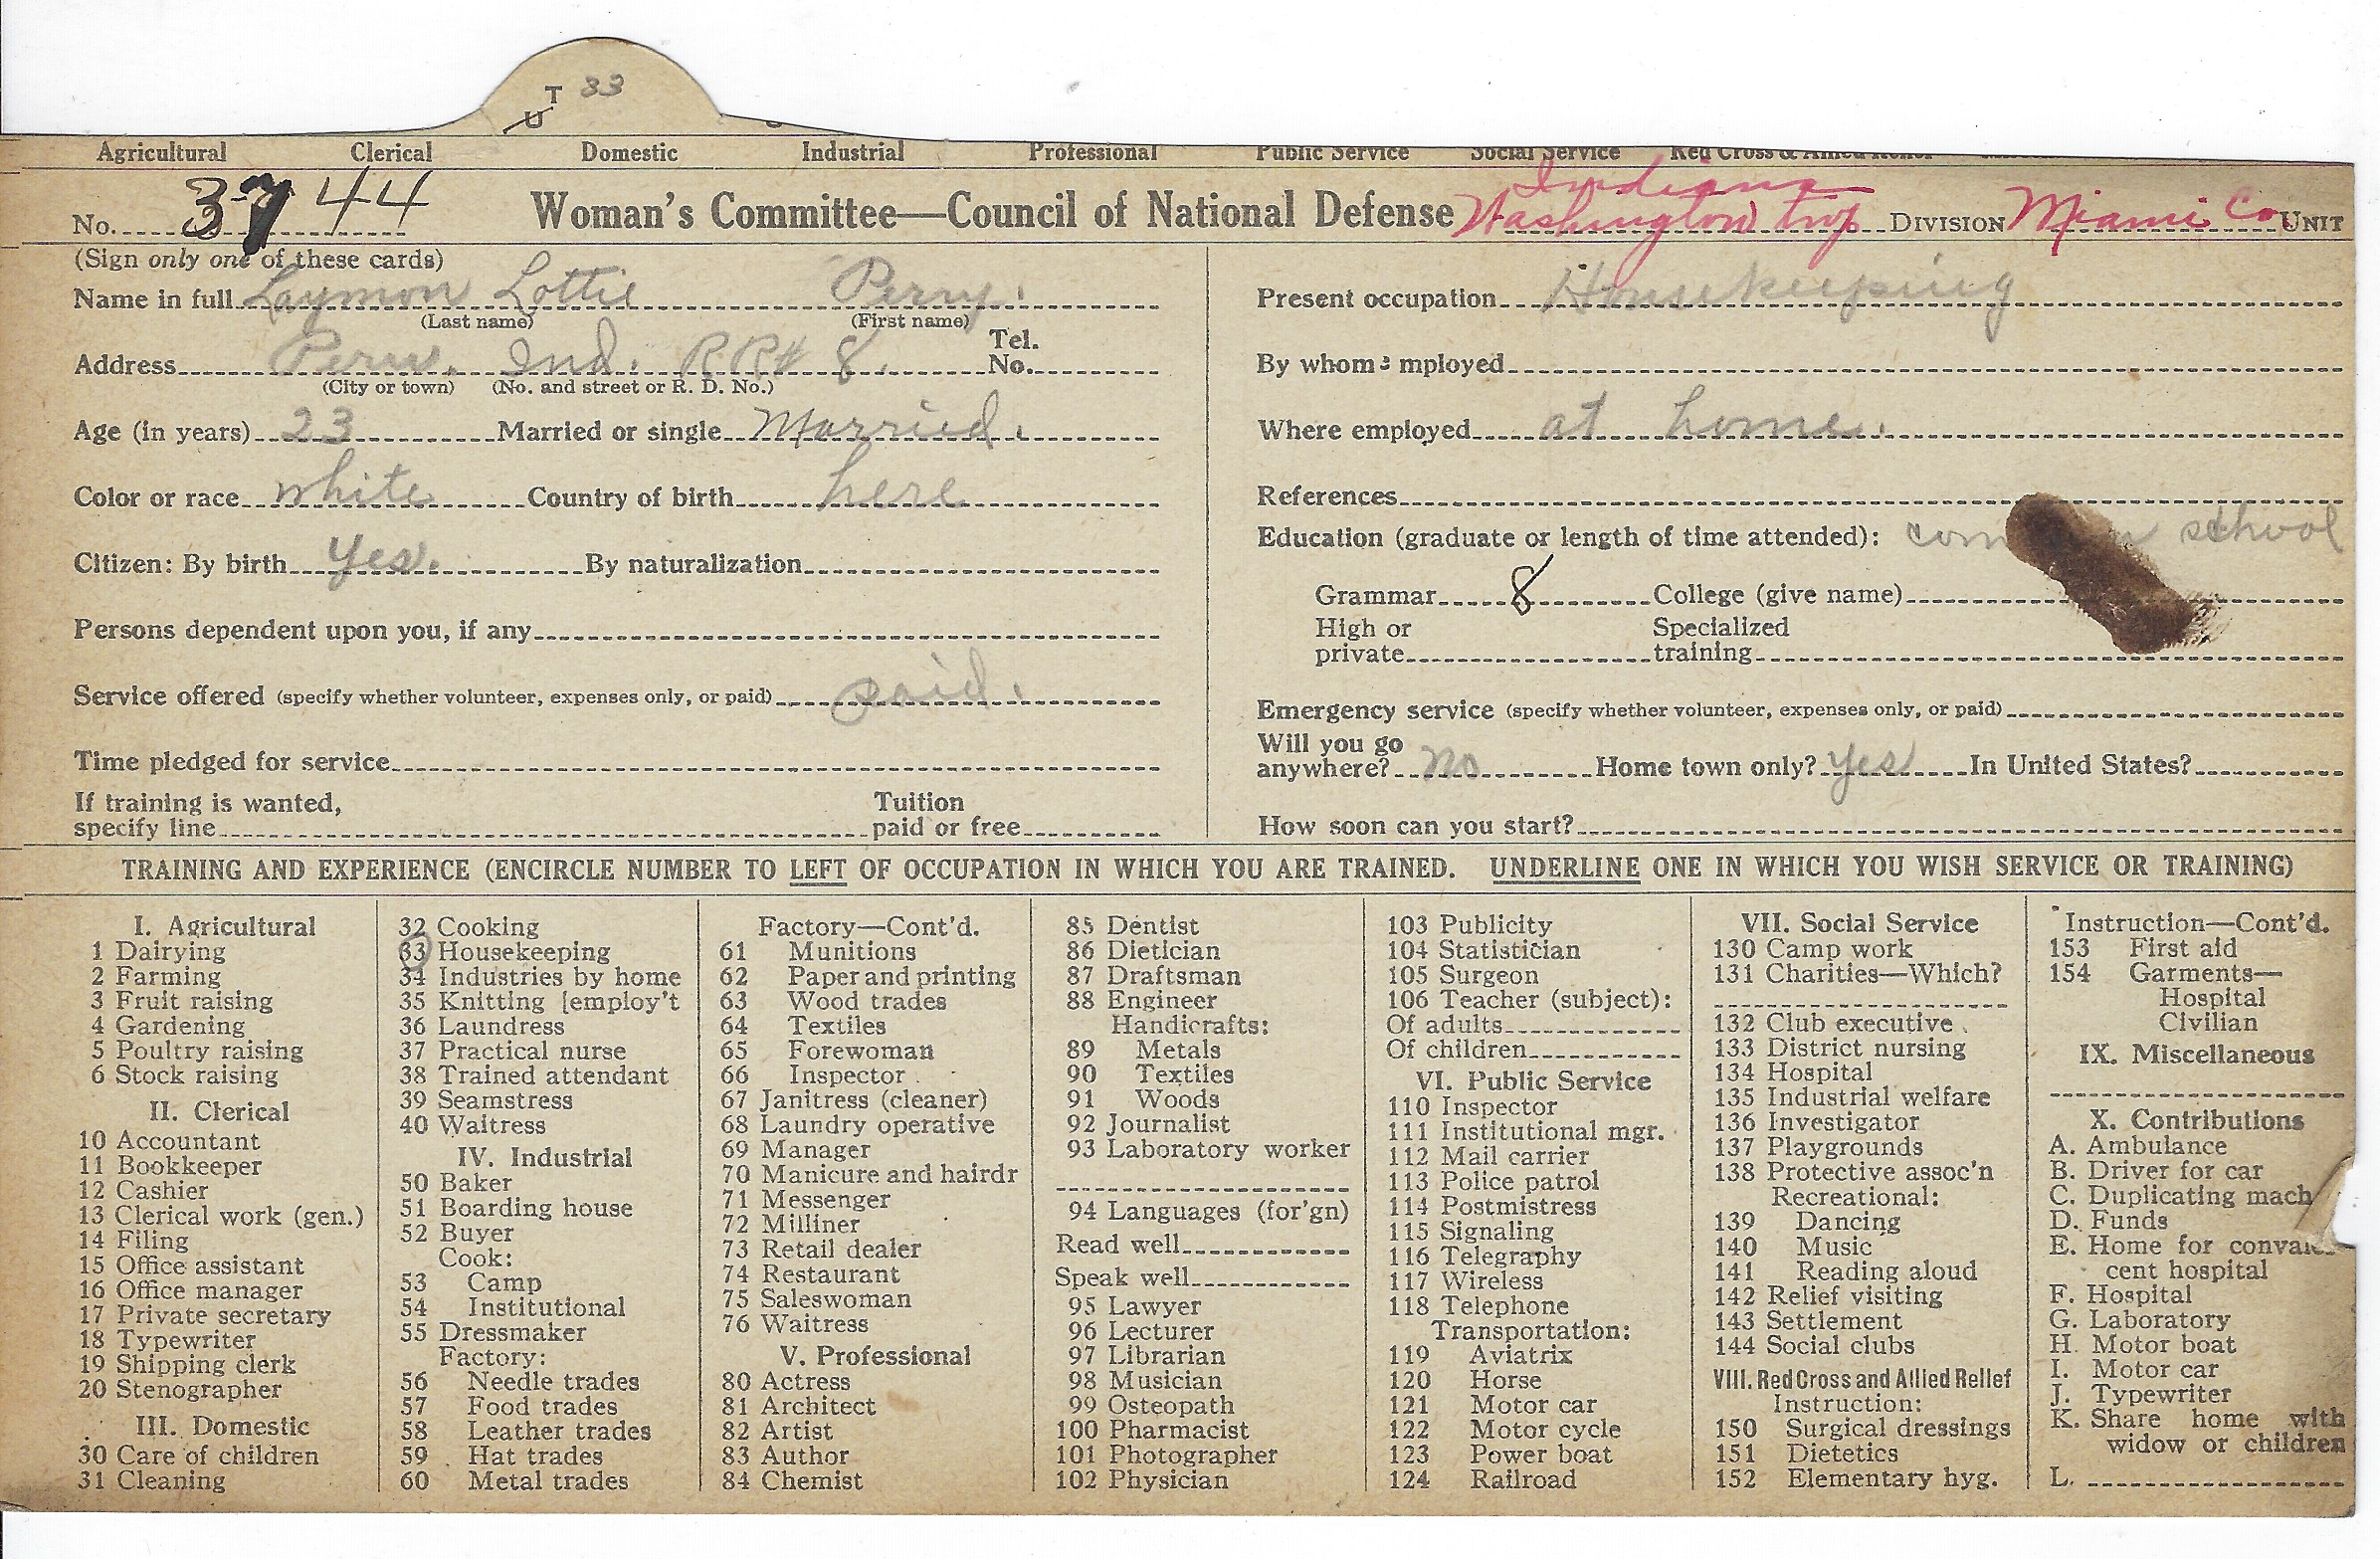 T 33
U
Agricultural Clerical Domestic Industrial Professional Public Service Social Service Red Cross & Allied Relief
Indiana
No. 3744 Woman's Committee—Council of National Defense Washington Twp DIVISION Miami Co. UNIT
(Sign only one of these cards)
Name in full Laymon Lottie Perry.
(Last name) (First name)
Address Peru. Ind. RR# 8. Tel. No.
(City or town) (No. and street or R. D. No.)
Age (in years) 23 Married or single Married.
Color or race white Country of birth here
Citizen: By birth Yes. By naturalization
Persons dependent upon you, if any
Service offered (specify whether volunteer, expenses only, or paid) paid.
Time pledged for service
If training is wanted, specify line Tuition paid or free
Present occupation Housekeeping
By whom employed
Where employed at home.
References
Education (graduate or length of time attended): school
Grammar 8 College (give name)
High or private Specialized training
Emergency service (specify whether volunteer, expenses only, or paid)
Will you go anywhere? No Home town only? Yes In United States?
How soon can you start?
TRAINING AND EXPERIENCE (ENCIRCLE NUMBER TO LEFT OF OCCUPATION IN WHICH YOU ARE TRAINED. UNDERLINE ONE IN WHICH YOU WISH SERVICE OR TRAINING)
I. Agricultural
1 Dairying
2 Farming
3 Fruit raising
4 Gardening
5 Poultry raising
6 Stock raising
II. Clerical
10 Accountant
11 Bookkeeper
12 Cashier
13 Clerical work (gen.)
14 Filing
15 Office assistant
16 Office manager
17 Private secretary
18 Typewriter
19 Shipping clerk
20 Stenographer
III. Domestic
30 Care of children
31 Cleaning
32 Cooking
33 Housekeeping
34 Industries by home
35 Knitting [employ't
36 Laundress
37 Practical nurse
38 Trained attendant
39 Seamstress
40 Waitress
IV. Industrial
50 Baker
51 Boarding house
52 Buyer
Cook:
53 Camp
54 Institutional
55 Dressmaker
Factory:
56 Needle trades
57 Food trades
58 Leather trades
59 Hat trades
60 Metal trades
Factory—Cont'd.
61 Munitions
62 Paper and printing
63 Wood trades
64 Textiles
65 Forewoman
66 Inspector
67 Janitress (cleaner)
68 Laundry operative
69 Manager
70 Manicure and hairdr
71 Messenger
72 Milliner
73 Retail dealer
74 Restaurant
75 Saleswoman
76 Waitress
V. Professional
80 Actress
81 Architect
82 Artist
83 Author
84 Chemist
85 Dentist
86 Dietician
87 Draftsman
88 Engineer
Handicrafts:
89 Metals
90 Textiles
91 Woods
92 Journalist
93 Laboratory worker
94 Languages (for'gn)
Read well
Speak well
95 Lawyer
96 Lecturer
97 Librarian
98 Musician
99 Osteopath
100 Pharmacist
101 Photographer
102 Physician
103 Publicity
104 Statistician
105 Surgeon
106 Teacher (subject):
Of adults
Of children
VI. Public Service
110 Inspector
111 Institutional mgr.
112 Mail carrier
113 Police patrol
114 Postmistress
115 Signaling
116 Telegraphy
117 Wireless
118 Telephone
Transportation:
119 Aviatrix
120 Horse
121 Motor car
122 Motor cycle
123 Power boat
124 Railroad
VII. Social Service
130 Camp work
131 Charities—Which?
132 Club executive
133 District nursing
134 Hospital
135 Industrial welfare
136 Investigator
137 Playgrounds
138 Protective assoc'n
Recreational:
139 Dancing
140 Music
141 Reading aloud
142 Relief visiting
143 Settlement
144 Social clubs
VIII. Red Cross and Allied Relief
Instruction:
150 Surgical dressings
151 Dietetics
152 Elementary hyg.
Instruction—Cont'd.
153 First aid
154 Garments—
Hospital
Civilian
IX. Miscellaneous
X. Contributions
A. Ambulance
B. Driver for car
C. Duplicating mach
D. Funds
E. Home for convales-
cent hospital
F. Hospital
G. Laboratory
H. Motor boat
I. Motor car
J. Typewriter
K. Share home with
widow or children
L.